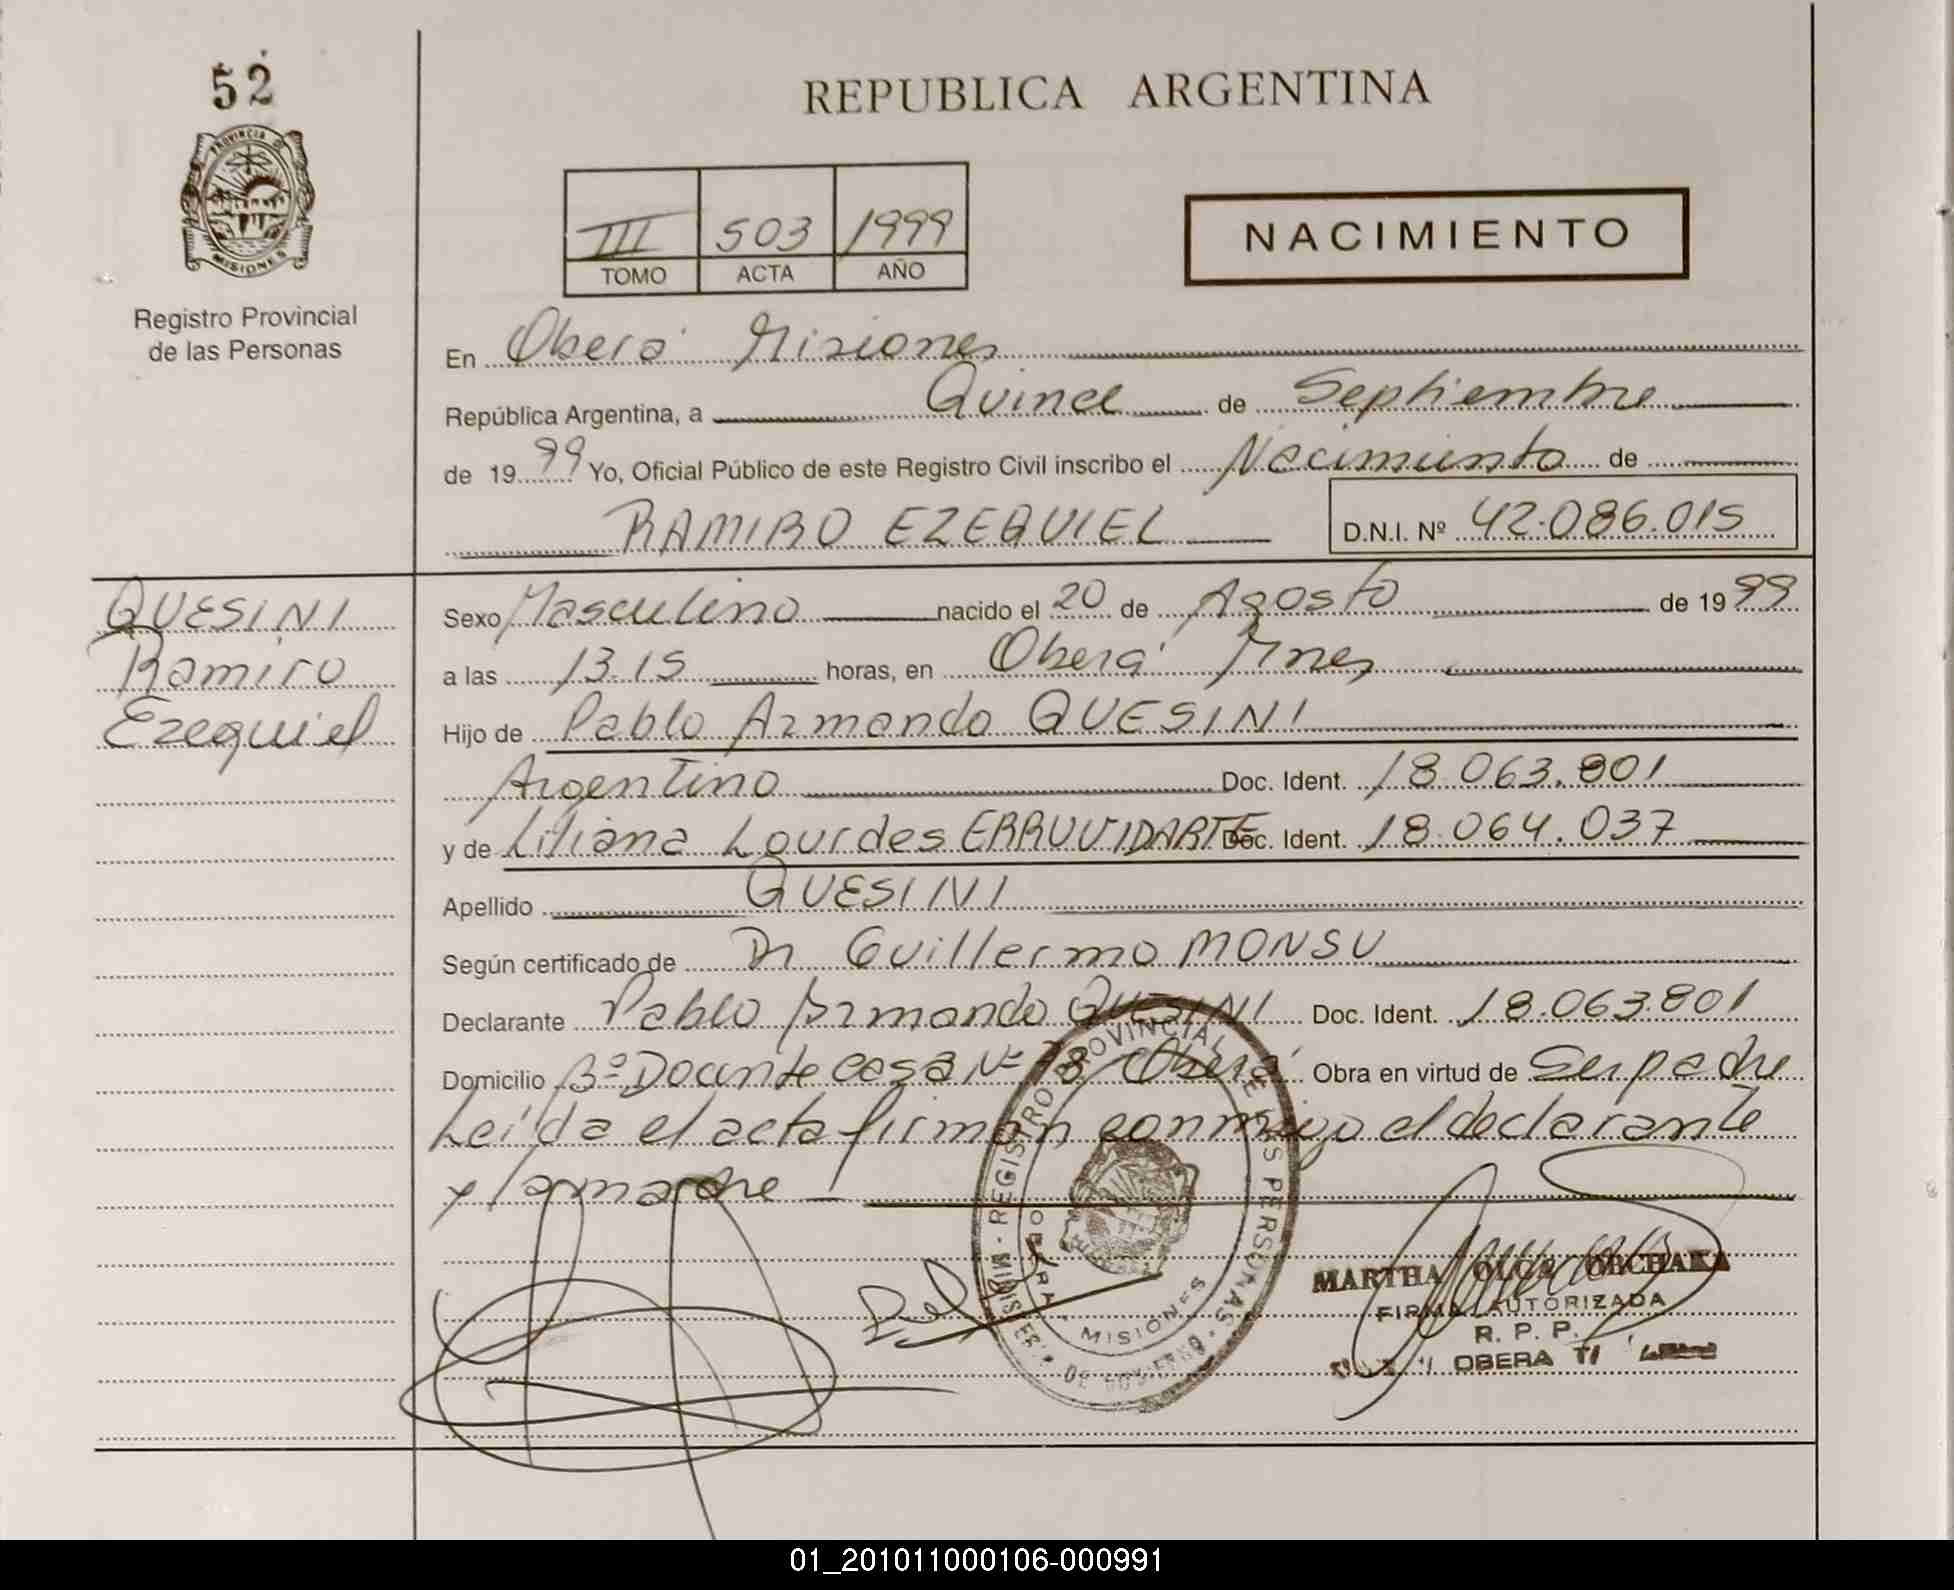 52
PROVINCIA DE
MISIONES
Registro Provincial
de las Personas
REPUBLICA ARGENTINA
III 503 1999
TOMO ACTA AÑO
NACIMIENTO
En Oberá Misiones
República Argentina, a Quince de Septiembre
de 1999 Yo, Oficial Público de este Registro Civil inscribo el Nacimiento de
RAMIRO EZEQUIEL D.N.I. Nº 42.086.015
QUESINI
Ramiro
Ezequiel
Sexo Masculino nacido el 20 de Agosto de 1999
a las 13.15 horas, en Oberá Mnes
Hijo de Pablo Armando QUESINI
Argentino Doc. Ident. 18.063.801
y de Liliana Lourdes ERRUVIDARTE Doc. Ident. 18.064.037
Apellido QUESINI
Según certificado de Dr Guillermo MONSU
Declarante Pablo Armando QUESINI Doc. Ident. 18.063.801
Domicilio Bº Docente casa Nº 78 Oberá Obra en virtud de Ser padre
Leída el acta firman conmigo el declarante
y la madre
REGISTRO PROVINCIAL DE LAS PERSONAS
OBERA
MISIONES
MARTHA OLGA ORCHAKA
FIRMA AUTORIZADA
R. P. P.
OBERA
01_201011000106-000991